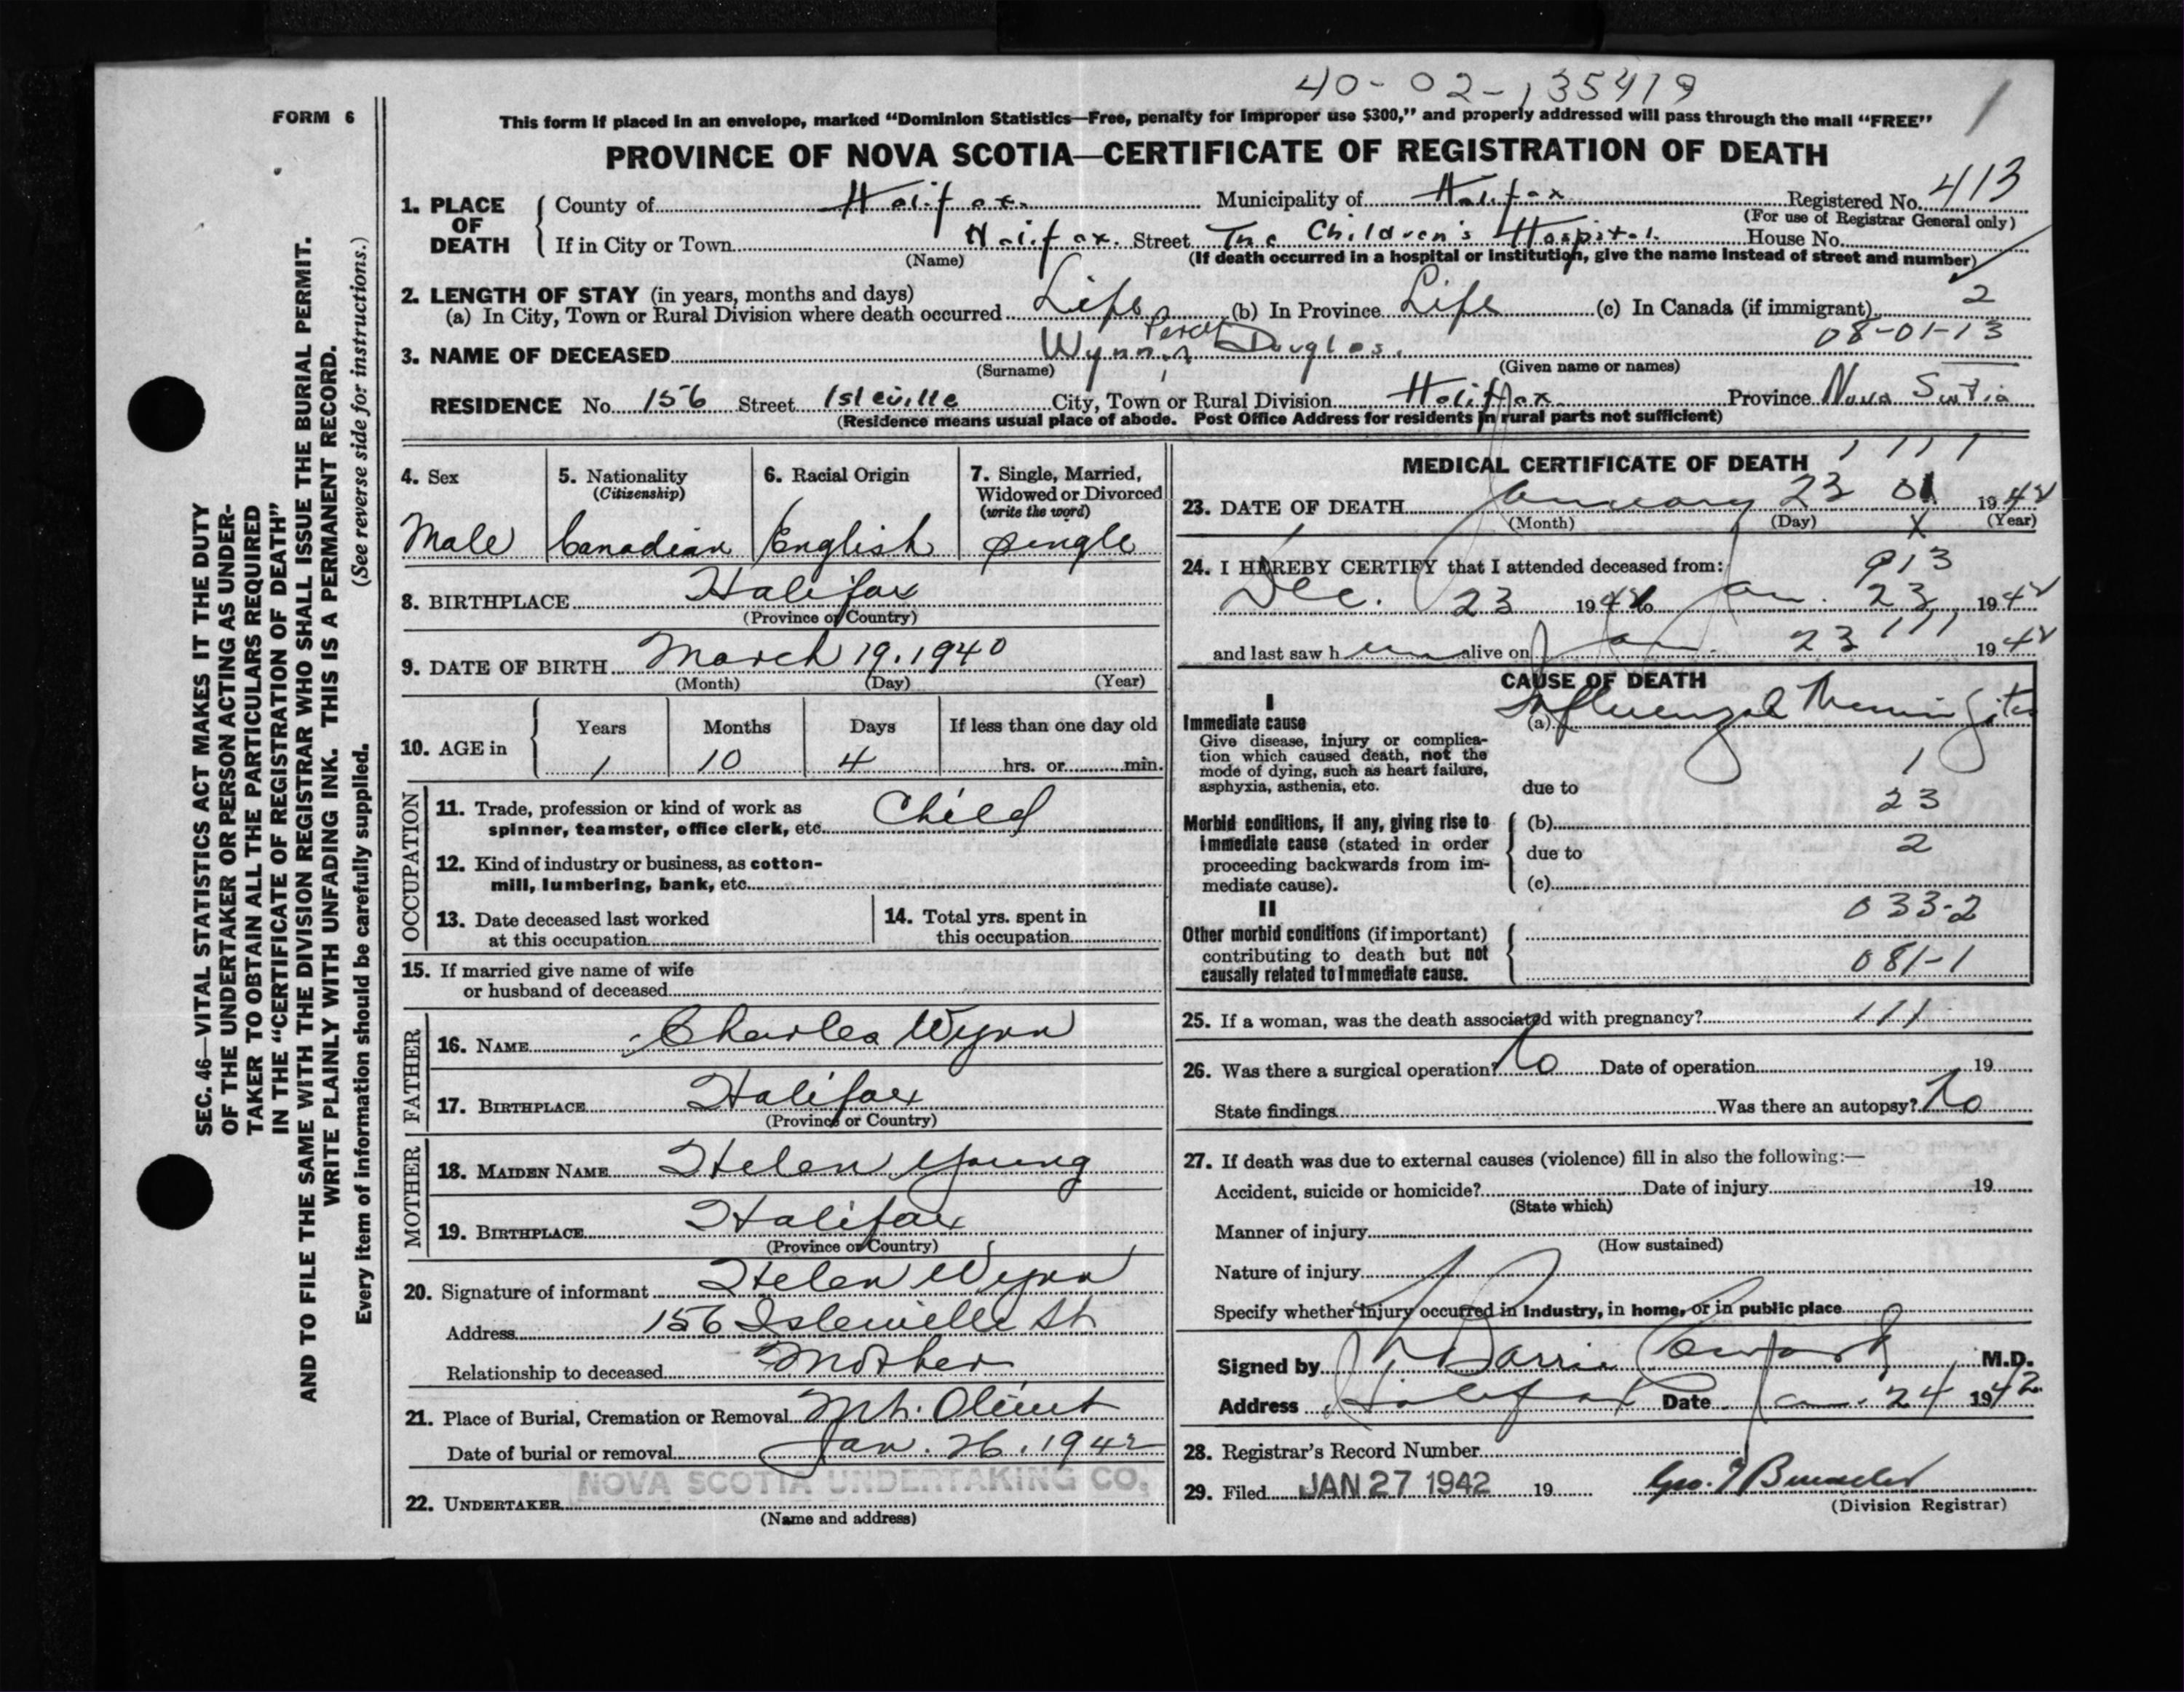 40-02-135419
1
FORM 6
This form if placed in an envelope, marked "Dominion Statistics—Free, penalty for improper use $300," and properly addressed will pass through the mail "FREE"
PROVINCE OF NOVA SCOTIA—CERTIFICATE OF REGISTRATION OF DEATH
1. PLACE OF DEATH
County of Halifax Municipality of Halifax Registered No. 413
(For use of Registrar General only)
If in City or Town Halifax. Street The Children's Hospital. House No.
(Name) (If death occurred in a hospital or institution, give the name instead of street and number)
2. LENGTH OF STAY (in years, months and days)
(a) In City, Town or Rural Division where death occurred Life (b) In Province Life (c) In Canada (if immigrant) 2
08-01-13
3. NAME OF DECEASED Wynn, Percy Douglas.
(Surname) (Given name or names)
RESIDENCE No. 156 Street Isleville City, Town or Rural Division Halifax Province Nova Scotia
(Residence means usual place of abode. Post Office Address for residents in rural parts not sufficient)
4. Sex
Male
5. Nationality
(Citizenship)
Canadian
6. Racial Origin
English
7. Single, Married,
Widowed or Divorced
(write the word)
single
8. BIRTHPLACE Halifax
(Province or Country)
9. DATE OF BIRTH March 19. 1940
(Month) (Day) (Year)
10. AGE in
Years Months Days If less than one day old
1 10 4 hrs. or min.
OCCUPATION
11. Trade, profession or kind of work as
spinner, teamster, office clerk, etc. Child
12. Kind of industry or business, as cotton-
mill, lumbering, bank, etc.
13. Date deceased last worked
at this occupation
14. Total yrs. spent in
this occupation
15. If married give name of wife
or husband of deceased
FATHER
16. NAME Charles Wynn
17. BIRTHPLACE Halifax
(Province or Country)
MOTHER
18. MAIDEN NAME Helen Young
19. BIRTHPLACE Halifax
(Province or Country)
20. Signature of informant Helen Wynn
Address 156 Isleville St
Relationship to deceased Mother
21. Place of Burial, Cremation or Removal Mt. Olivet
Date of burial or removal Jan. 26, 1942
NOVA SCOTIA UNDERTAKING CO.
22. UNDERTAKER
(Name and address)
1 111
MEDICAL CERTIFICATE OF DEATH
23. DATE OF DEATH January 23 01 1942
(Month) (Day) X (Year)
24. I HEREBY CERTIFY that I attended deceased from: 913
Dec. 23 1941 to Jan. 23 1942
111
and last saw him alive on Jan. 23 1942
CAUSE OF DEATH
I
Immediate cause
Give disease, injury or complica-
tion which caused death, not the
mode of dying, such as heart failure,
asphyxia, asthenia, etc.
(a) Influenzal Meningitis
1
due to
23
Morbid conditions, if any, giving rise to
immediate cause (stated in order
proceeding backwards from im-
mediate cause).
(b)
due to 2
(c)
II
Other morbid conditions (if important)
contributing to death but not
causally related to immediate cause.
033-2
081-1
25. If a woman, was the death associated with pregnancy? 111
26. Was there a surgical operation? No Date of operation 19
State findings Was there an autopsy? No
27. If death was due to external causes (violence) fill in also the following:—
Accident, suicide or homicide? Date of injury 19
(State which)
Manner of injury
(How sustained)
Nature of injury
Specify whether injury occurred in industry, in home, or in public place
Signed by Barrie M.D.
Address Halifax Date Jan. 24 1942
28. Registrar's Record Number
29. Filed JAN 27 1942 19 Geo.
(Division Registrar)
SEC. 46—VITAL STATISTICS ACT MAKES IT THE DUTY
OF THE UNDERTAKER OR PERSON ACTING AS UNDER-
TAKER TO OBTAIN ALL THE PARTICULARS REQUIRED
IN THE "CERTIFICATE OF REGISTRATION OF DEATH"
AND TO FILE THE SAME WITH THE DIVISION REGISTRAR WHO SHALL ISSUE THE BURIAL PERMIT.
WRITE PLAINLY WITH UNFADING INK. THIS IS A PERMANENT RECORD.
Every item of information should be carefully supplied. (See reverse side for instructions.)